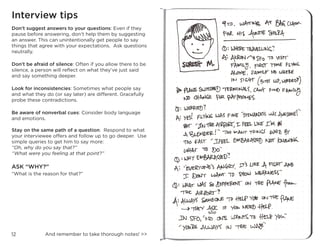 Interview tips
Don't suggest answers to your questions Even if they
pause before answering, don't help them by suggesting
an answer. This can unintentionally get people to say
things that agree with your expectations. Ask questions
neutrally.
Don't be afraid of silence: Often if you allow there to be
silence, a person will reflect on what they've just said
and say something deeper.
Look for inconsistencies: Sometimes what people say
and what they do (or say later) are different. Gracefully
probe these contradictions.
Be aware of nonverbal cues: Consider body language
and emotions.
Stay on the same path of a question. Respond to what
your interviewee offers and follow up to go deeper. Use
simple queries to get him to say more:
"Oh, why do you say that?"
"What were you feeling at that point?"
ASK "WHY?"
"What is the reason for that?"
12
And remember to take thorough notes! >>
9 YO, WAITING AT BAG CLAIM
FOR HIS AUNTIE
SURESH M.
Q: WHERE TRAVELLING?
TO VISIT
FAMILY. FIRST TIME FLYING
ALONE. FAMILY NO WHERE
IN SIGHT (STILL NO, WORRIED)
TERMINALS, CAN'T FIND FAMILY,
NO CHANGE FOR PAYPHONES
Q: WORRIED?
A: YES! FLYING WAS FINE "STEWARDESS WAS AWESOME!"
BUT "IN THE AIRPORT, I FEEL LIKE I'M IN
A BLENDER!" TOO MANY THINGS GOING BY
TOO FAST "I FEEL EMBARASSED NOT KNOWING
WHAT TO DO"
Q: WHY EMBARASSED?
A: "EVERYONE'S ANGRY. IT'S LIKE A FIGHT AND
I DON'T WANT TO SHOW WEAKNESS"
Q: WHAT WAS SO DIFFERENT ON THE PLANE FROM
THE AIRPORT?
A: ALWAYS SOMEONE TO HELP YOU ON THE PLANE
→ THEY ASK IF YOU NEED HELP
IN SFO, "NO ONE WANTS TO HELP YOU"
"YOU'RE ALWAYS IN THE WAY"